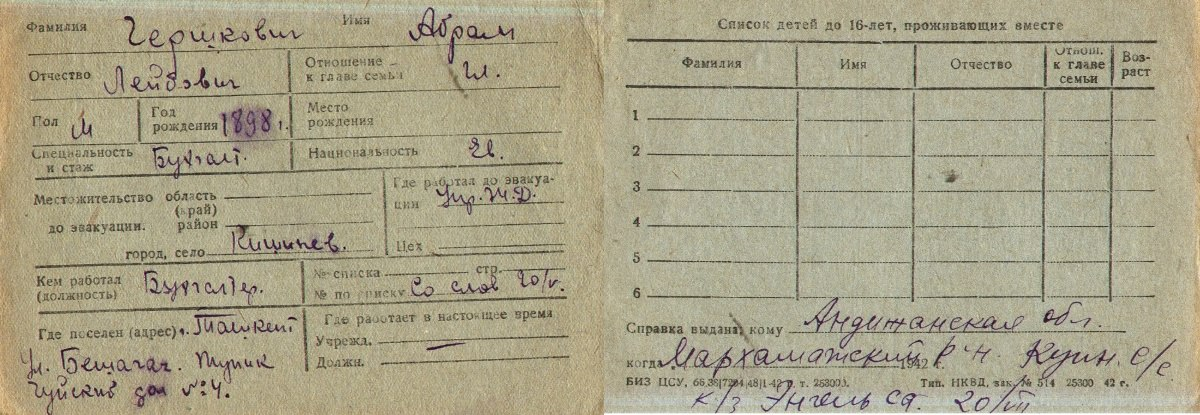 Фамилия Гершкович Имя Абрам
Отчество Лейбович Отношение к главе семьи гл.
Пол М Год рождения 1898 г. Место рождения
Специальность и стаж Бухгалт. Национальность Ев.
Местожительство область
(край)
до эвакуации. район
город, село Кишинев.
Где работал до эвакуации Упр. Ж.Д.
Цех
Кем работал (должность) Бухгалтер.
№ списка стр.
№ по списку Со слов 20/V.
Где поселен (адрес) г. Ташкент
ул. Бешагач. Тупик
дом №4.
Где работает в настоящее время
Учрежд. —
Должн.
Список детей до 16-лет, проживающих вместе
Фамилия Имя Отчество Отнош. к главе семьи Возраст
1
2
3
4
5
6
Справка выдана, кому Андижанская обл.
когда Мархаматский р-н. с/с
1942 г.
БИЗ ЦСУ, т. 25300). Тип. НКВД, зак. № 514 25300 42 г.
к/з Энгельса. 20/III